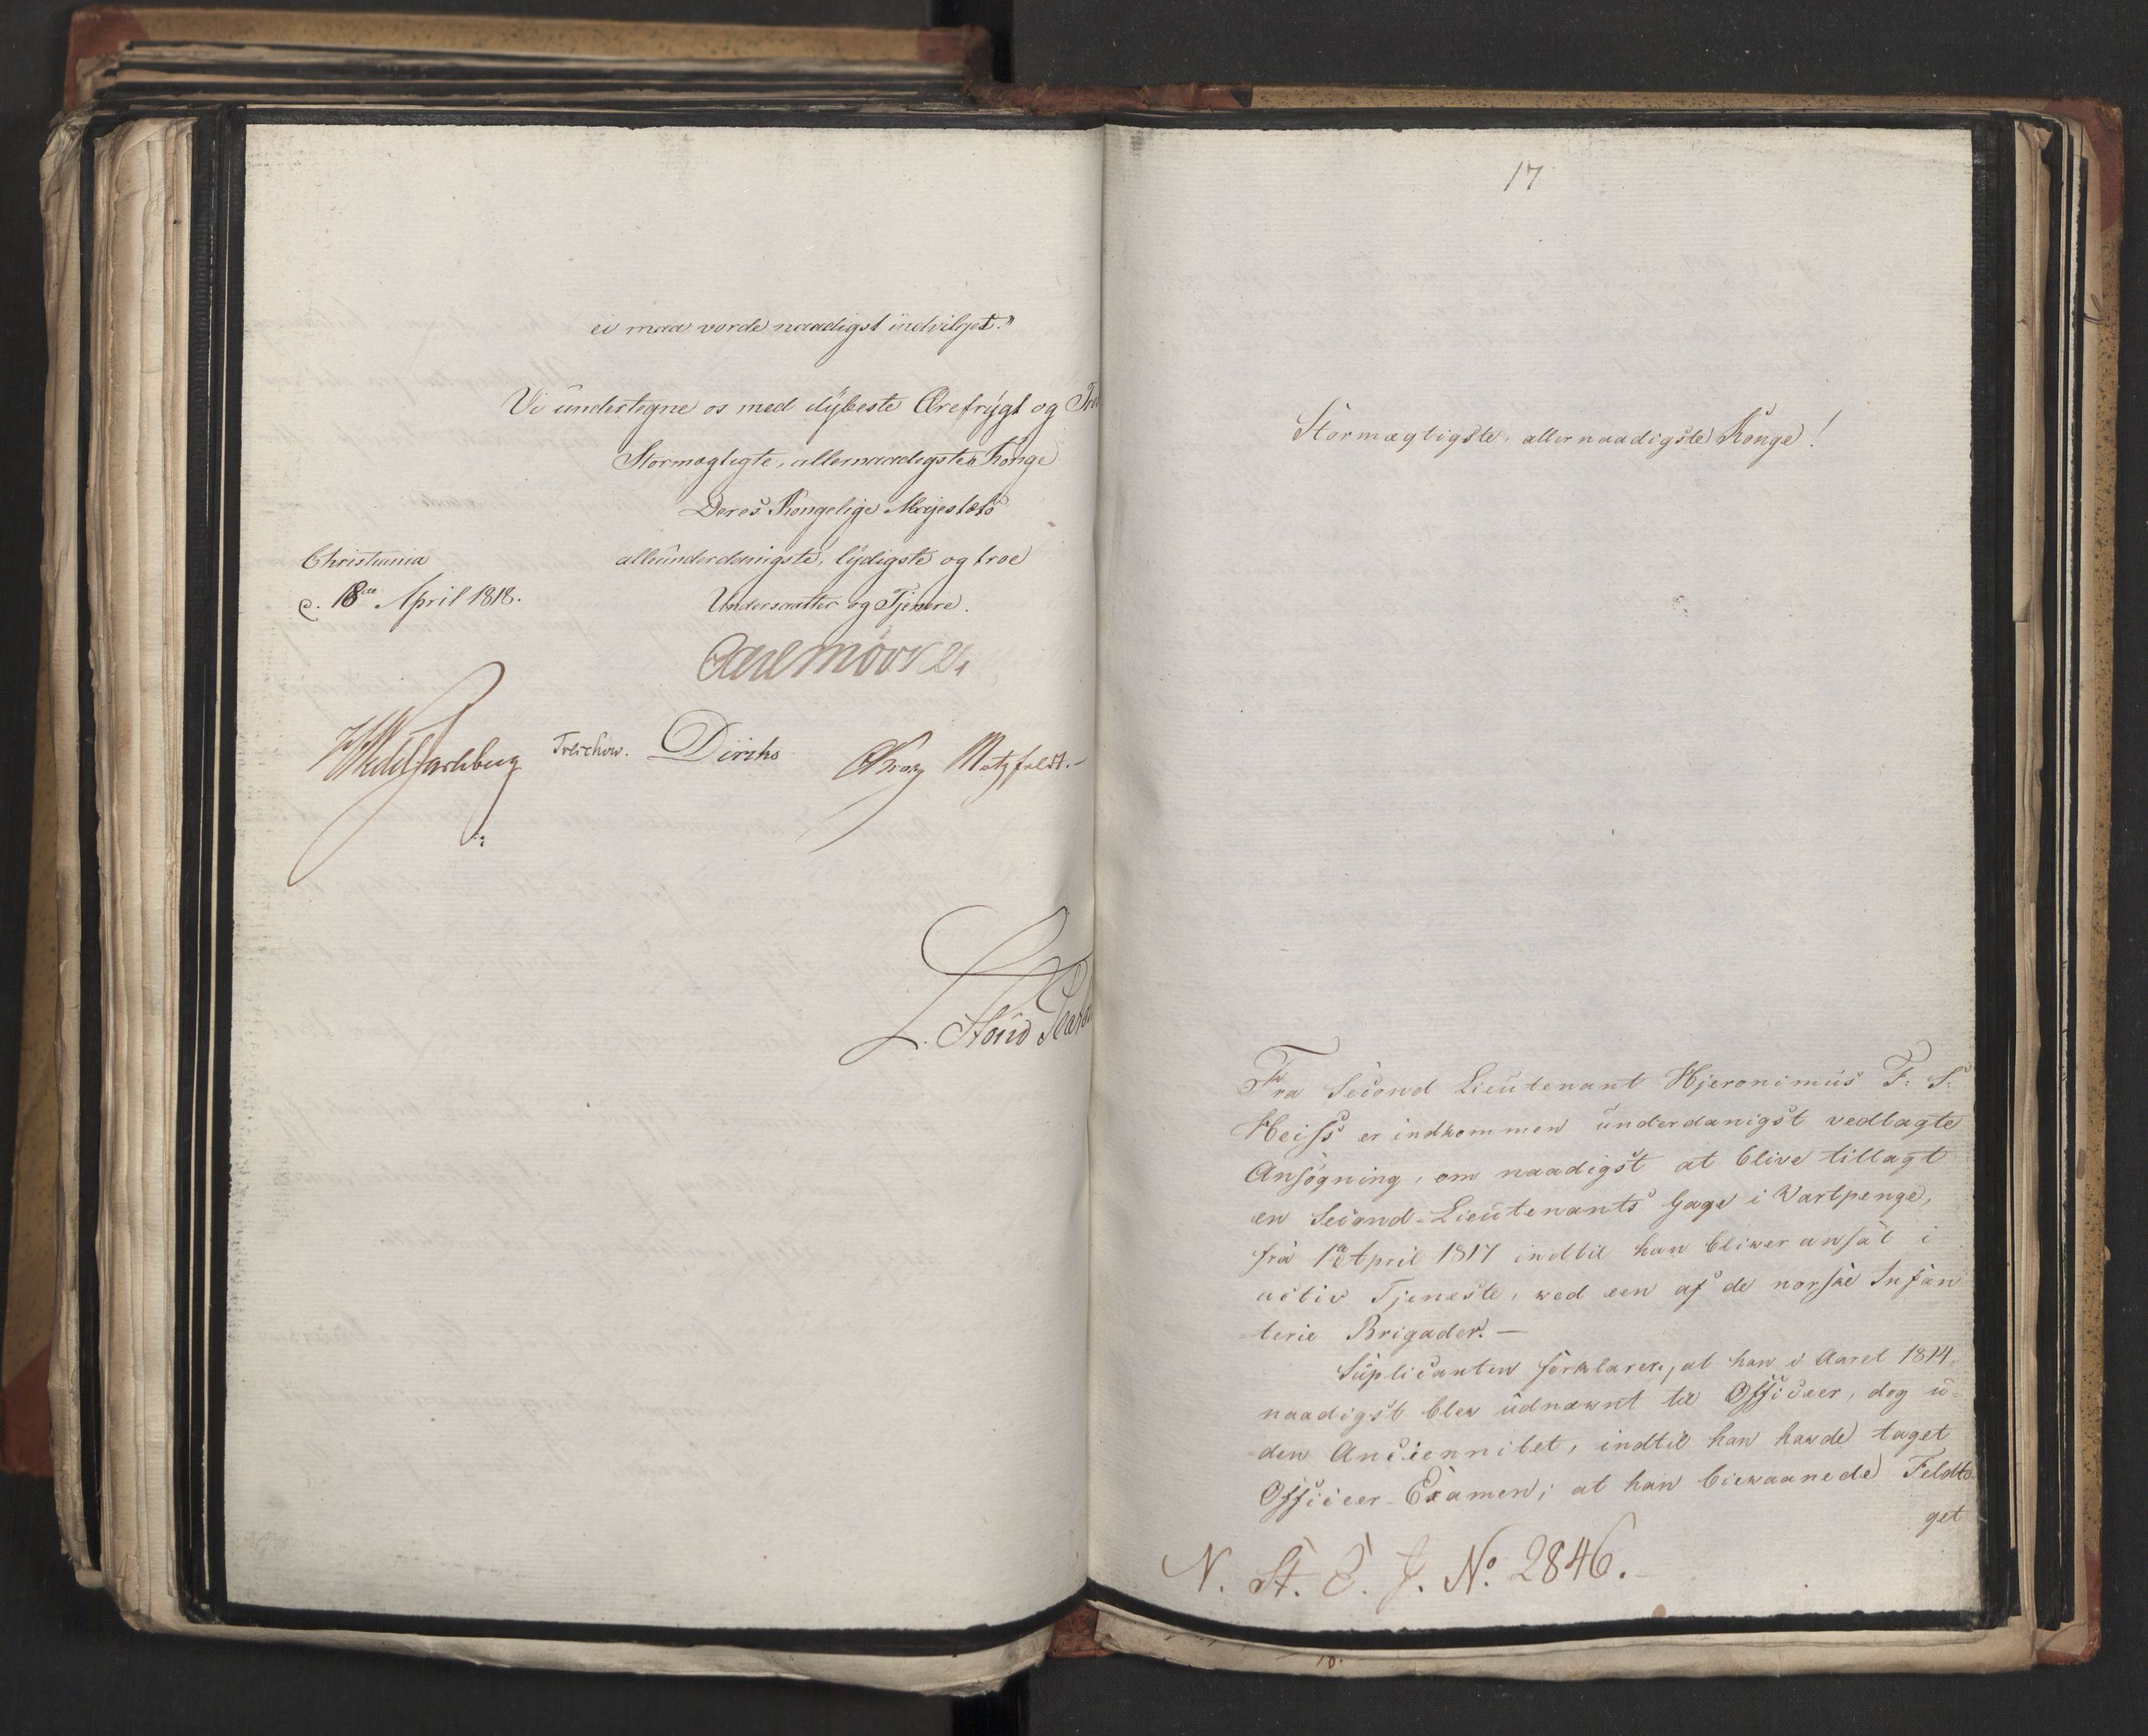 ei maa vorde naadigst indvilget."
Vi undertegne os med dybeste Ærefrygt og
Stormægtigste, allernaadigste Konge
Deres Kongelige Majestæts
allerunderdanigste, lydigste og troe
Undersaatter og Tjenere.
Christiania
d. 18de April 1818.
Carl Mörner
Wedel Jarlsberg Treschow. Diriks Krog Motzfeldt.
17
Stormægtigste, allernaadigste Konge!
Fra Second Lieutenant Hjeronimus F: S:
Heiss er indkommen underdanigst vedlagte
Ansøgning, om naadigst at blive tillagt
en Second-Lieutenants Gage i Vartpenge,
fra 1ste April 1817 indtil han bliver ansat i
activ Tjeneste, ved een af de norske Infan
terie Brigader. —
Suplicanten forklarer, at han i Aaret 1814
naadigst blev udnævnt til Officeer, dog u-
den Anciennitet, indtil han havde taget
Officeer-Examen; at han biewaanede Feldto-
get
N. St. E. J. No. 2846.